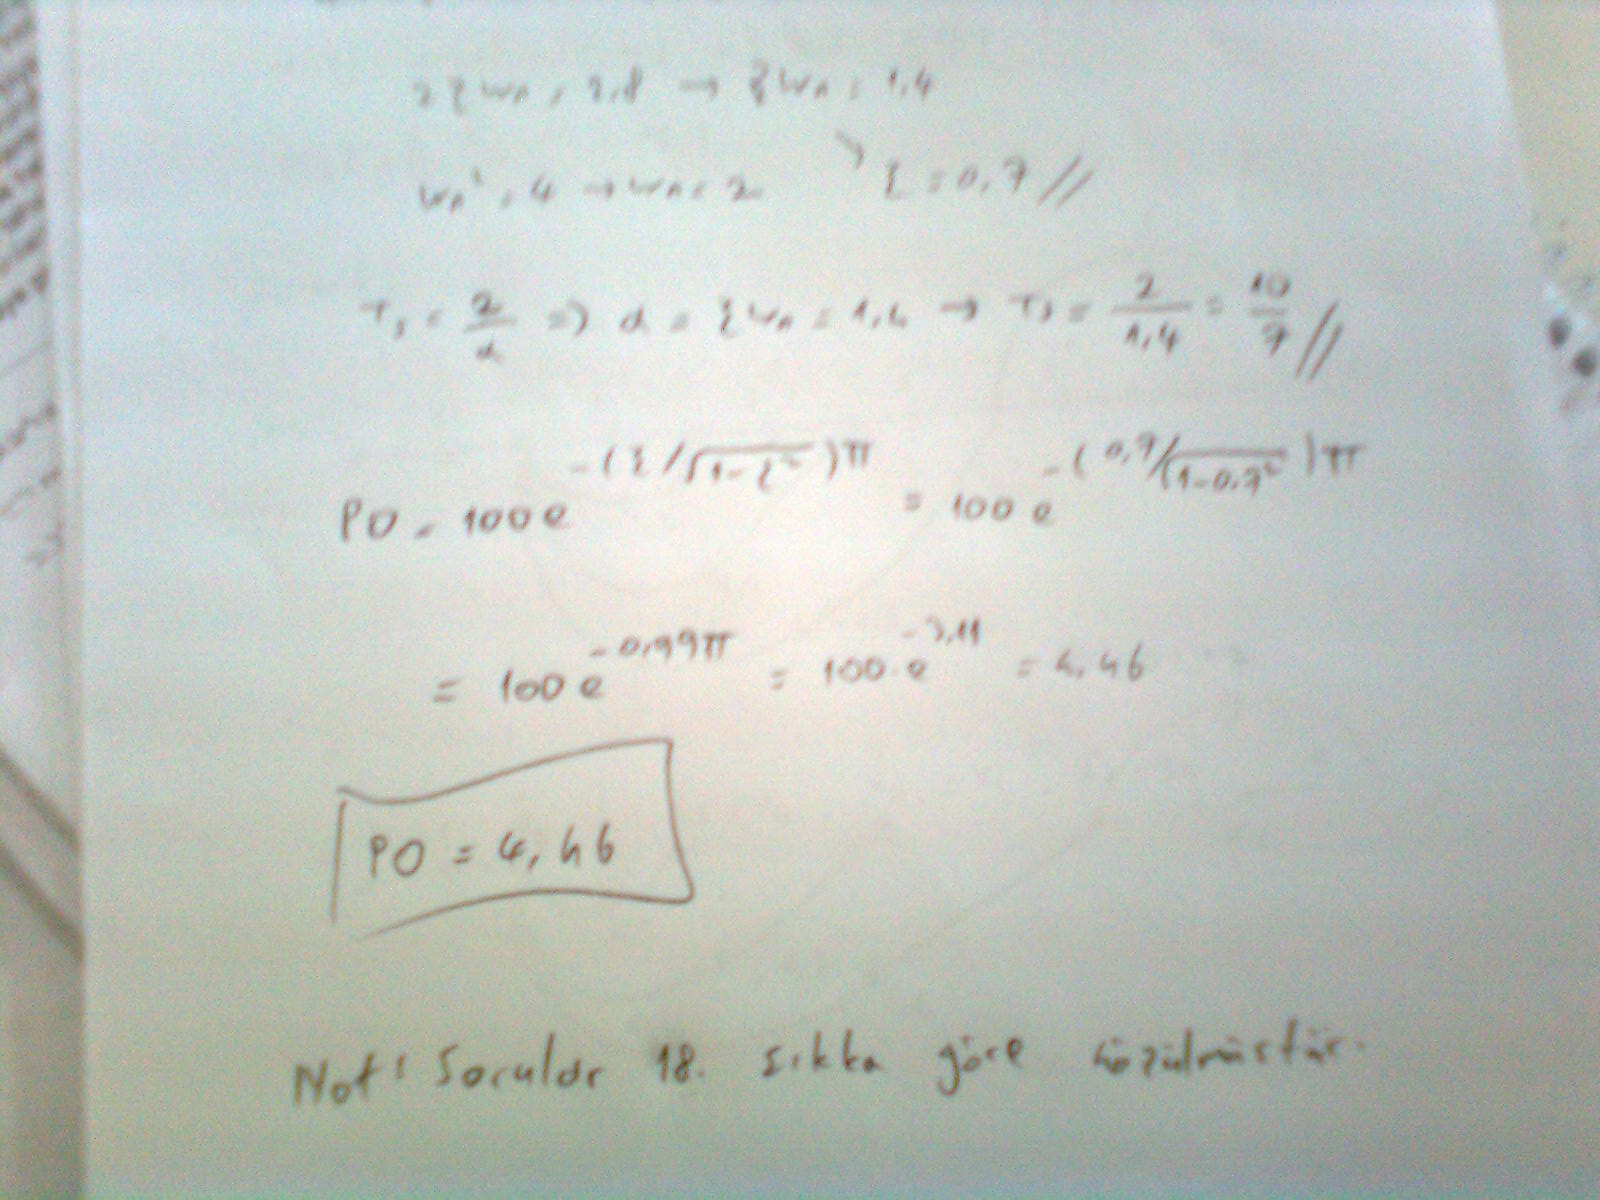 2ξwn = 2,8 → ξwn = 1,4
wn² = 4 → wn = 2 ↘ ξ = 0,7 //
Ts = 2/α => α = ξwn = 1,4 → Ts = 2/1,4 = 10/7 //
PO = 100 e^-(ξ/√1-ξ²)π = 100 e^-(0,7/√1-0,7²)π
= 100 e^-0,99π = 100.e^-3,11 = 4,46
PO = 4,46
Not: Sorular 18. şıkka göre çözülmüştür.